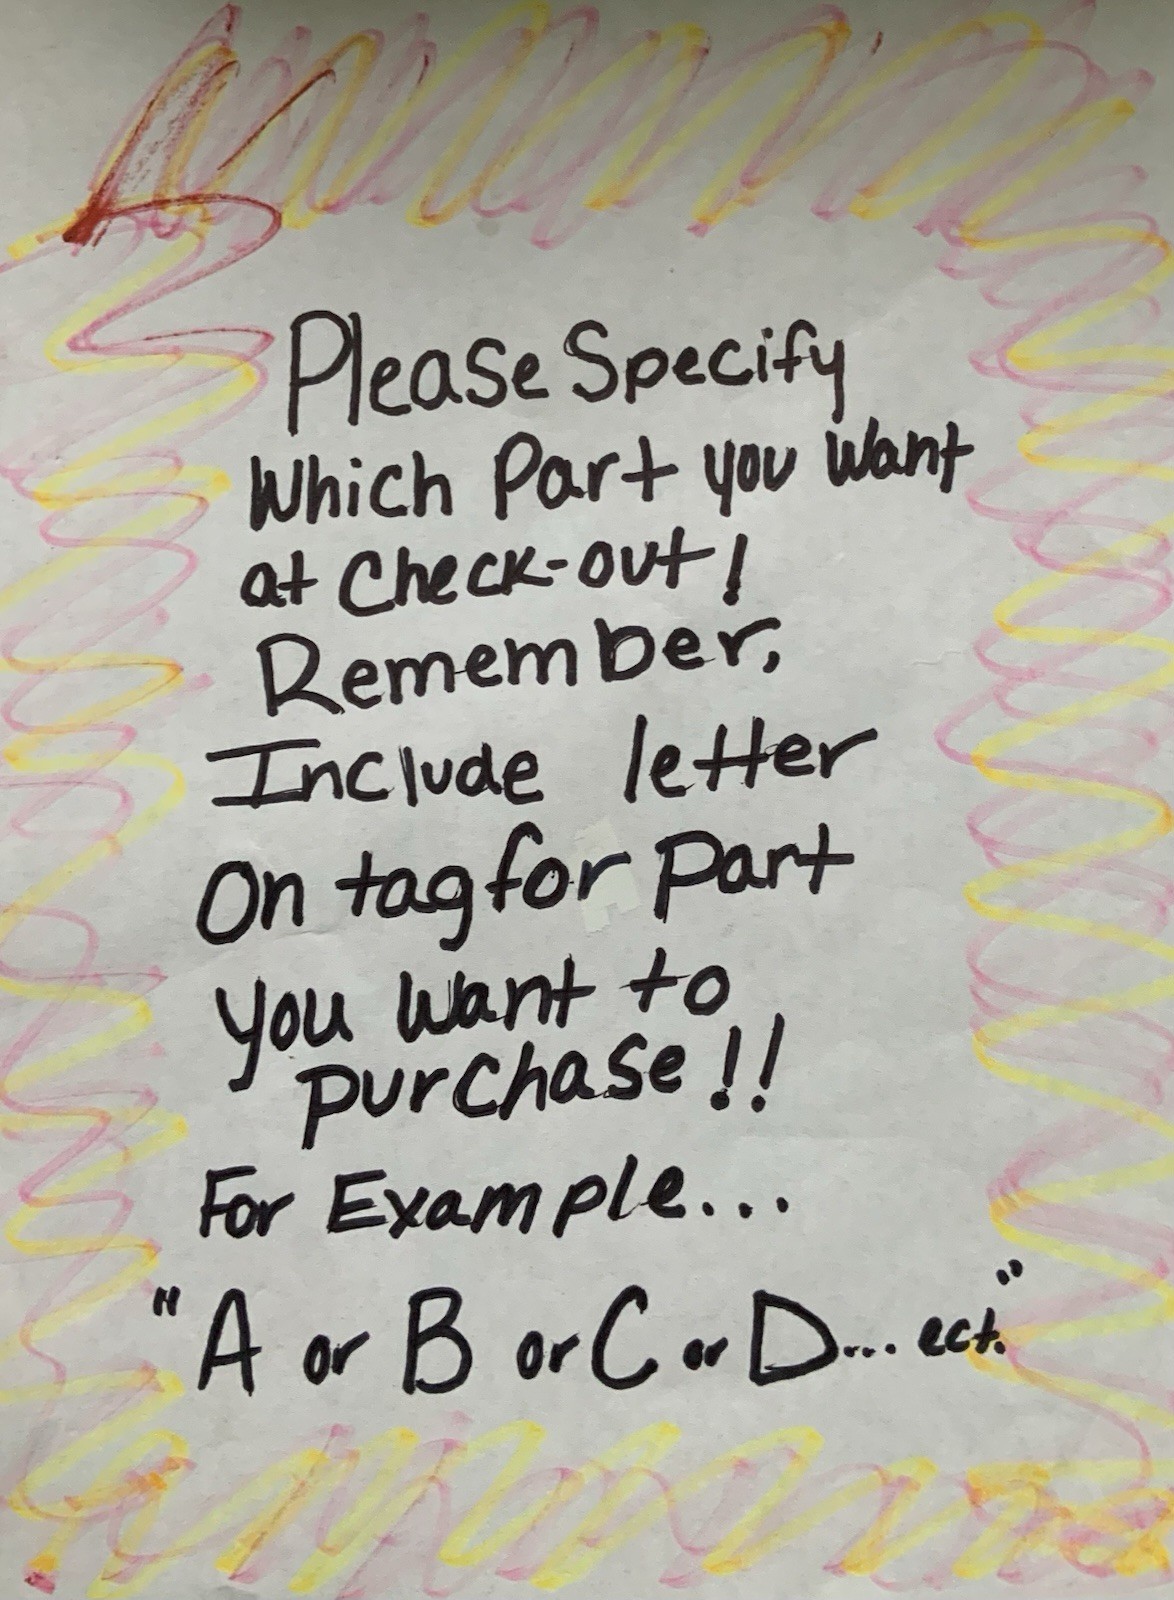 Please Specify
Which Part you Want
at Check-out!
Remember,
Include letter
On tag for Part
you Want to
purchase!!
For Example...
"A or B or C or D... ect."